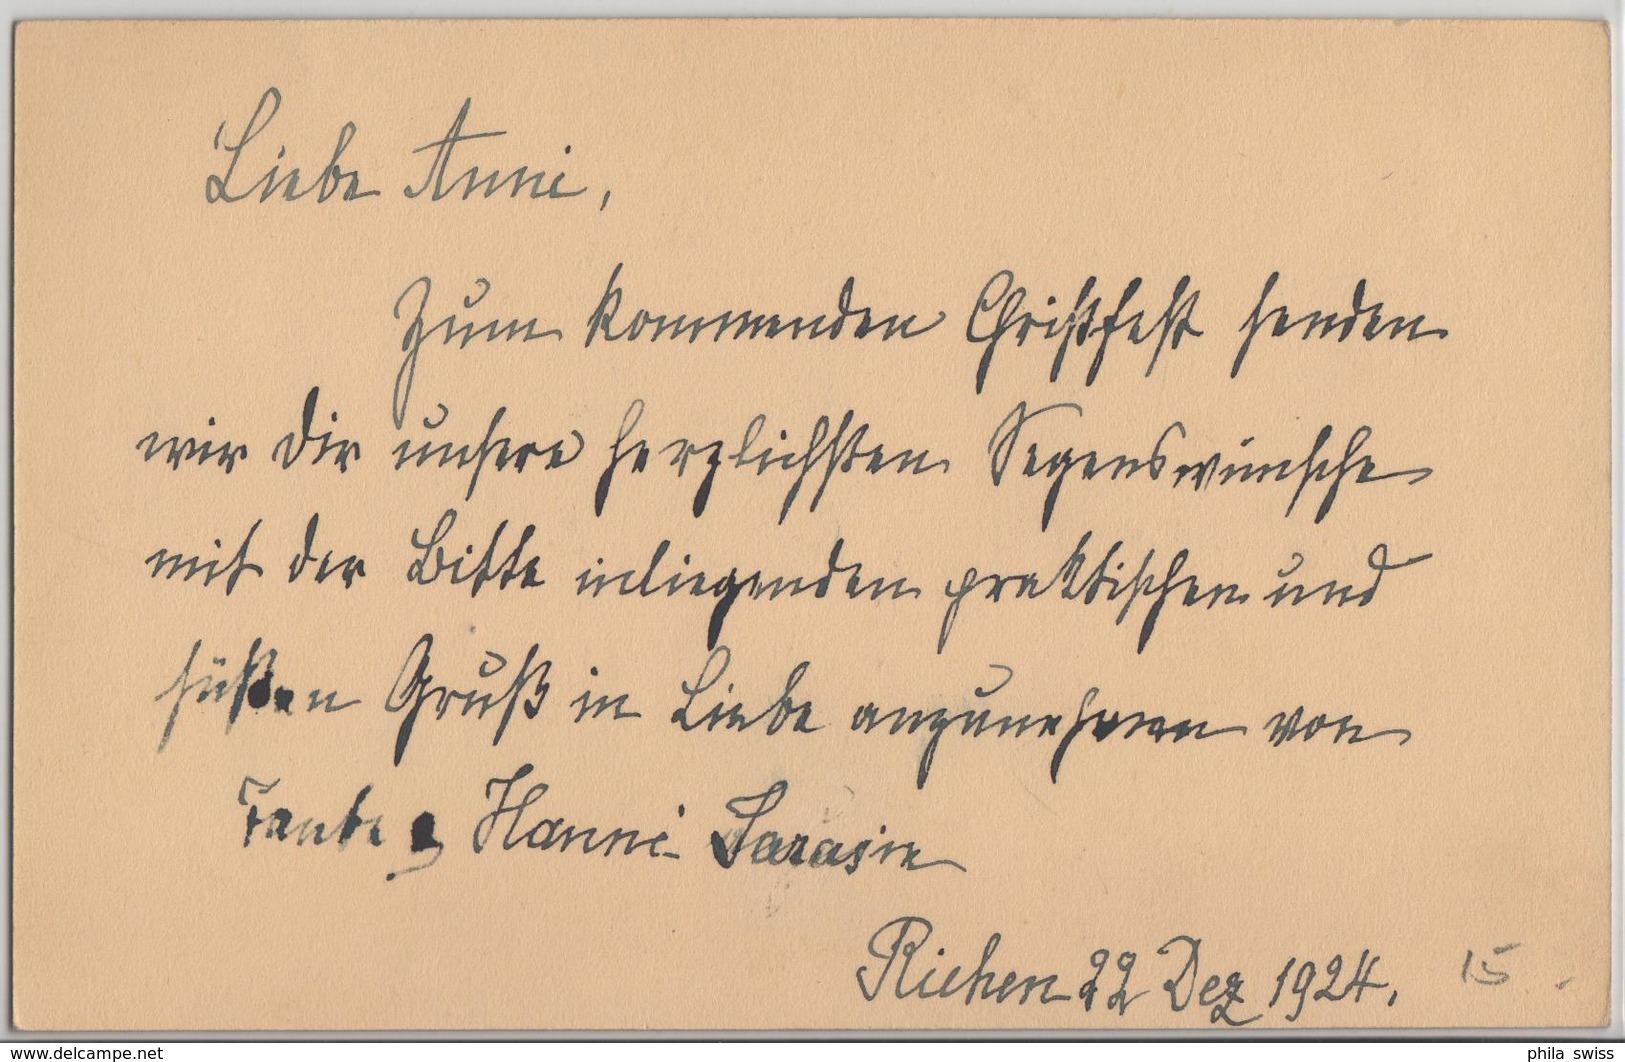 Liebe Anni,
Zum kommenden Christfest senden
wir Dir unsere herzlichsten Segenswünsche
mit der Bitte inliegenden praktischen und
süßen Gruß in Liebe anzunehmen von
Tante Hanni Sarasin
Riehen 22 Dez 1924.
15
www.delcampe.net
phila swiss